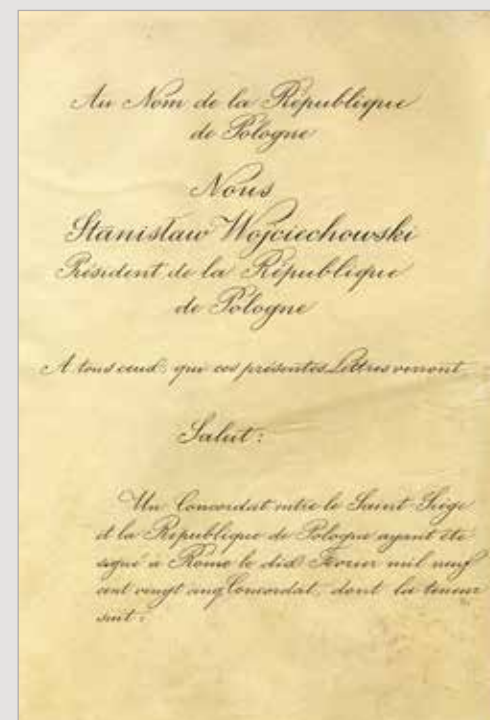 Au Nom de la République
de Pologne
Nous
Stanisław Wojciechowski
Président de la République
de Pologne
A tous ceux, qui ces présentes Lettres verront
Salut:
Un Concordat entre le Saint-Siège
et la République de Pologne ayant été
signé à Rome le dix Février mil neuf
cent vingt cinq Concordat, dont la teneur
suit: